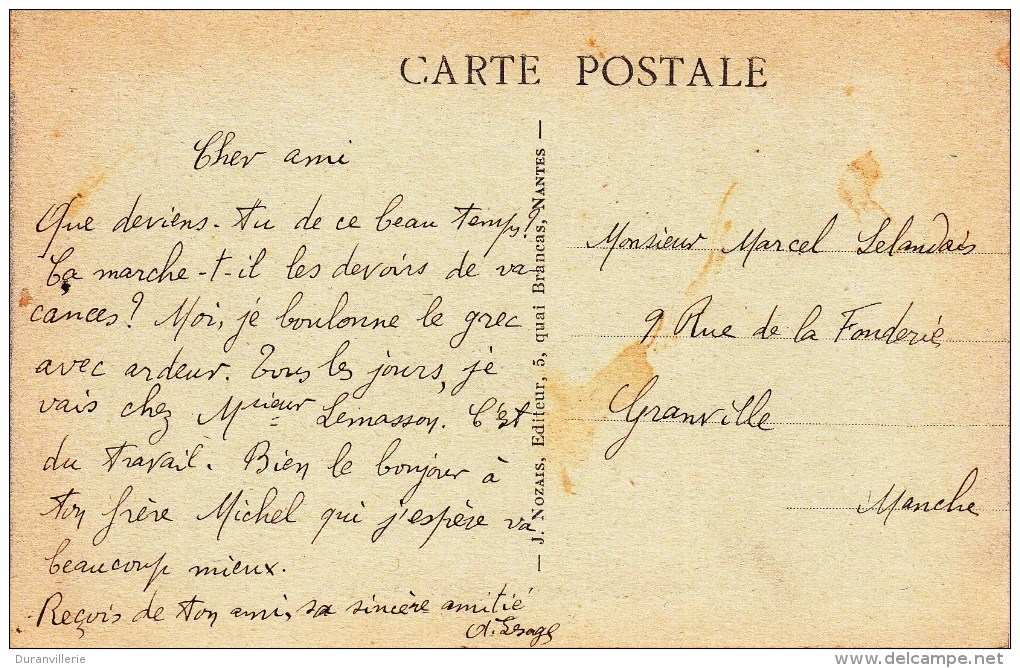 CARTE POSTALE
Cher ami
Que deviens-tu de ce beau temps?
Ça marche-t-il les devoirs de va-
cances? Moi, je boulonne le grec
avec ardeur. Tous les jours, je
vais chez Msieur Lemasson. C'est
du travail. Bien le bonjour à
ton frère Michel qui j'espère va
beaucoup mieux.
Reçois de ton ami, sa sincère amitié
A. Lesage
— J. NOZAIS, Editeur, 5, quai Brancas, NANTES —
Monsieur Marcel Lelandais
9 Rue de la Fonderie
Granville
Manche
Duranvillerie
www.delcampe.net